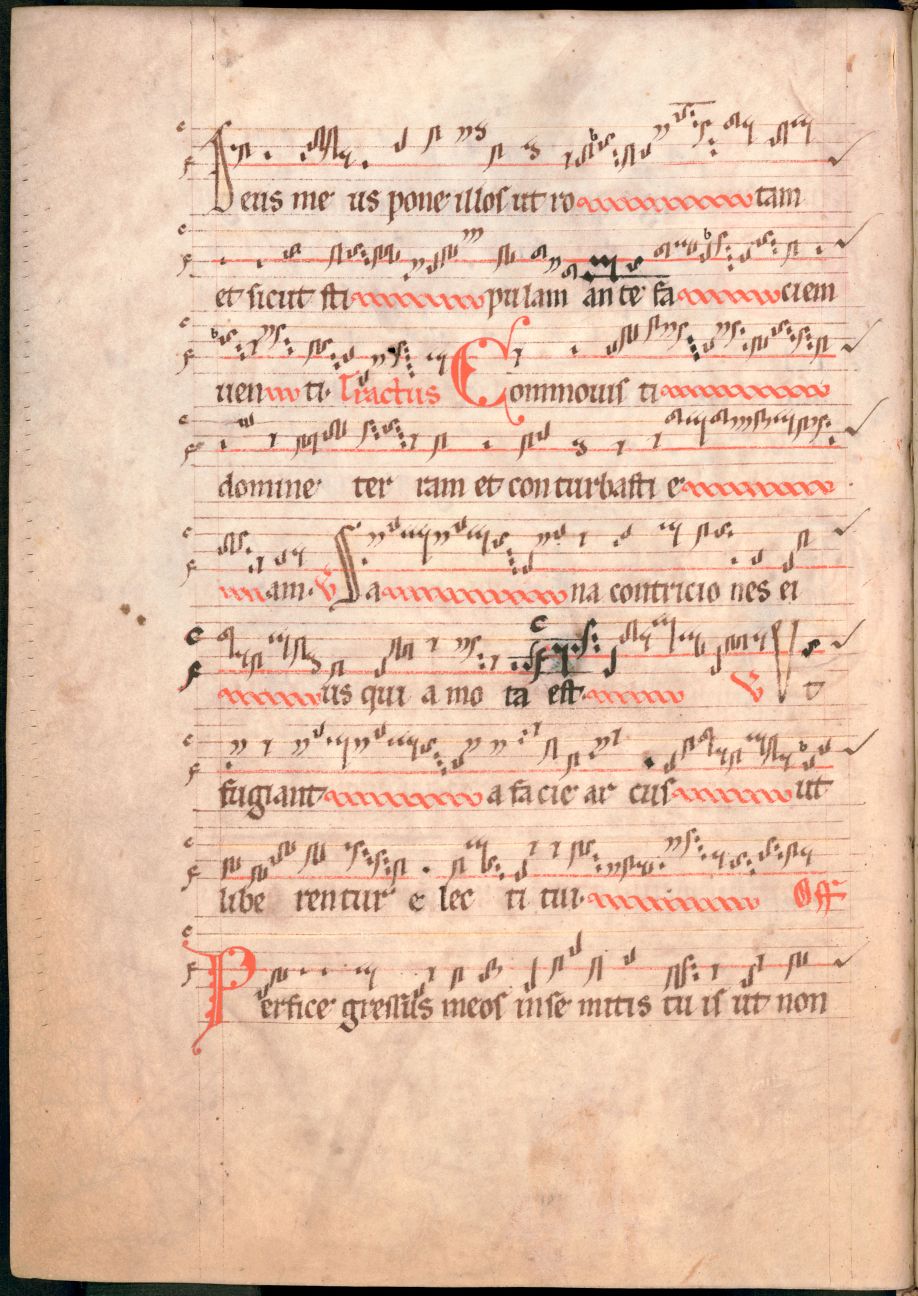 Deus me us pone illos ut ro tam
et sicut sti pulam an te fa ciem
uen ti. Tractus Commouis ti
domine ter ram et conturbasti e
am. V Sa na contricio nes ei
us qui a mo ta est V Vt
fugiant a facie ar cus ut
libe rentur e lec ti tui. Off
Perfice gressus meos inse mitis tu is ut non